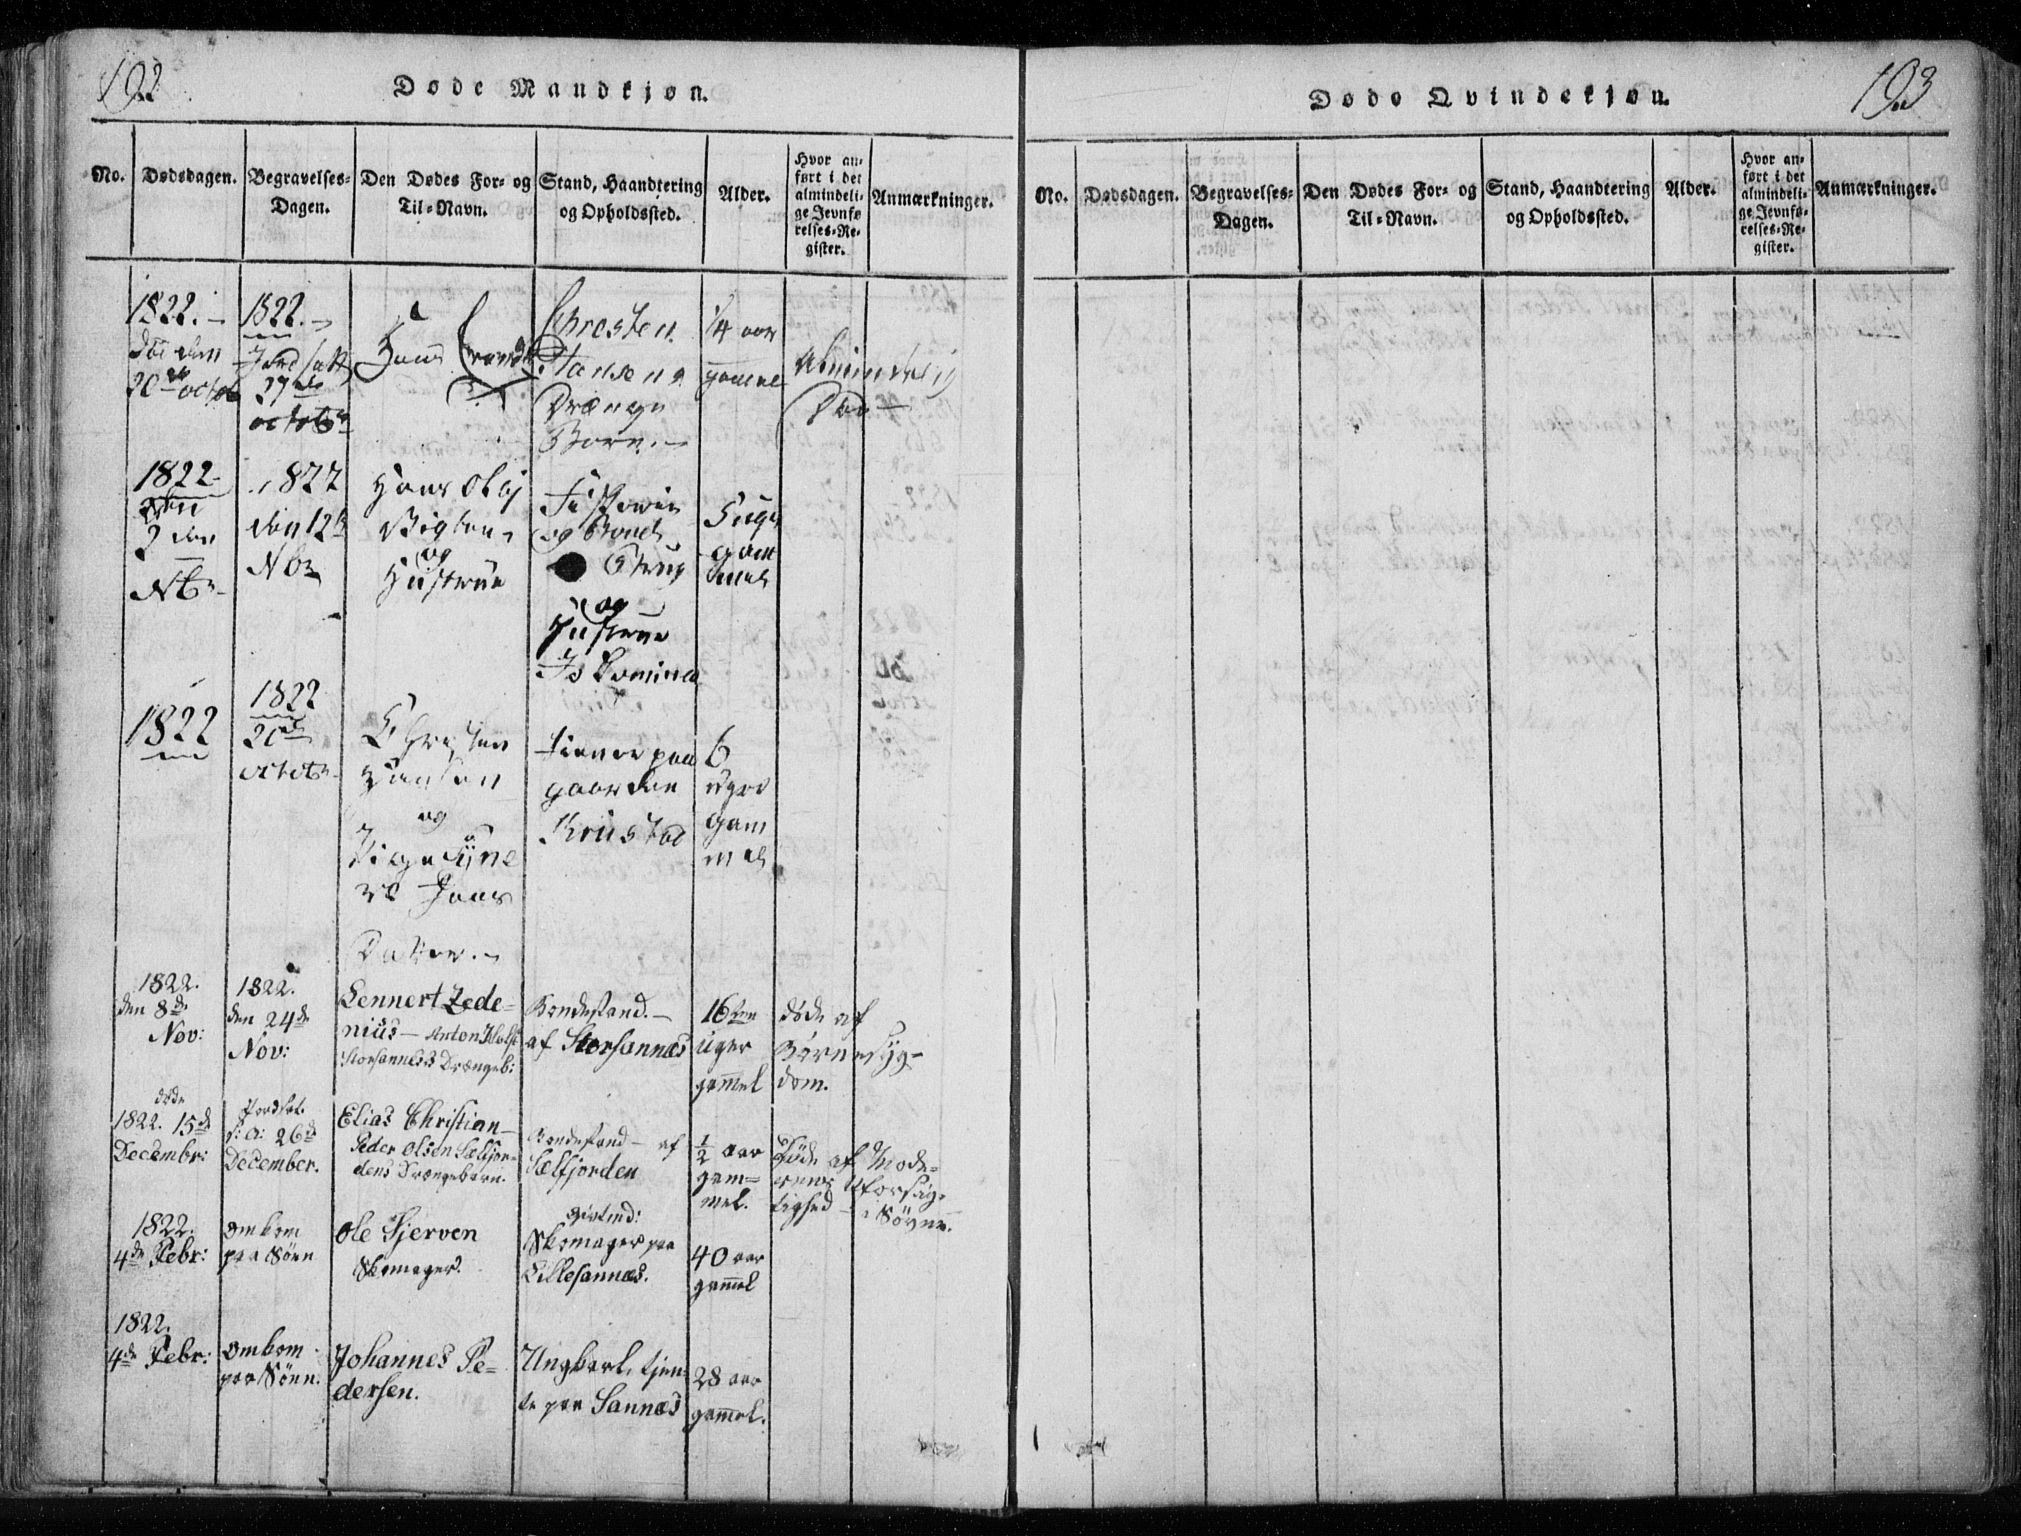 192
Døde Mandkjøn.
No.
Dødsdagen.
Begravelses-
Dagen.
Den Dødes For- og
Til-Navn.
Stand, Haandtering
og Opholdssted.
Alder.
Hvor an-
ført i det
almindeli-
ge Jevnfø
relses-Re-
gister.
Anmærkninger.
1822.
20de octob
1822.
Jordsatt
27de
octobr
Hans
Christen
Hansens
Drænge
Barn.
1/4 aar
gamel
Almindelig
1822
den
2 den
Nbr
1822
den 12te
Nbr
Hans Olaj
og
Hustrue
og Bonde
og
Hustrue
Suge
gam
mel
1822
1822
20de
octobr
Christen
Hansen
og
tiener paa
gaarden
Krustad
6
uger
gam
mel
1822.
den 8de
Nov:
1822.
den 24de
Nov:
Lennert Zede-
nius - Anton Holst
Storsannæs Drængeb:
Bondestand. -
af Storsannæs
16ten
uger
gammel
døde af
Børnesyg-
dom.
døde
1822. 15de
Decembr:
Jordsat.
s: a: 26de
December.
Elias Christian
Peder Olsen Sælfjor-
dens Drængebarn.
Bondestand - af
Sælfjorden
1/2 aar
gam-
mel.
Døde af Mode-
rens Uforsig-
tighed - i Søvne.
1822.
4de Febr:
omkom
paa Søen
Ole Tjerven
Skomager.
givtmd:
Skomager paa
Lillesannæs.
40 aar
gammel
1822.
4de Febr:
omkom
paa Søen.
Johannes Pe-
dersen.
Ungkarl, tjen-
te paa Sannæs
28 aar
gammel.
193
Døde Qvindekjøn.
No.
Dødsdagen.
Begravelses-
Dagen.
Den Dødes For- og
Til-Navn.
Stand, Haandtering
og Opholdssted.
Alder.
Hvor an-
ført i det
almindeli-
ge Jevnfø-
relses-Re-
gister.
Anmærkninger.